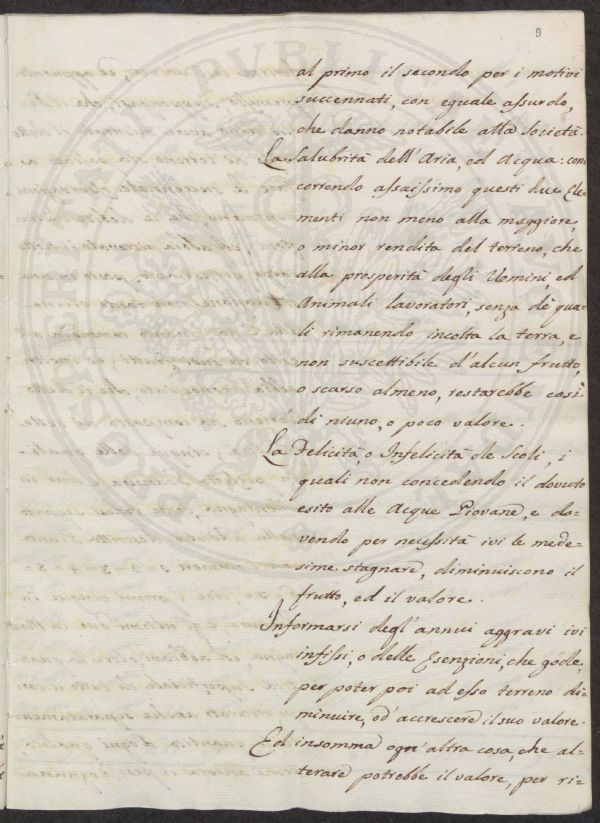 9
al primo il secondo per i motivi
succennati, con equale assurdo,
che danno notabile alla Società.
La Salubrità dell'Aria, ed Acqua: con
correndo assaissimo questi due Ele-
menti non meno alla maggiore,
o minor rendita del terreno, che
alla prosperità degli Uomini, ed
Animali lavoratori, senza de' qua-
li rimanendo incolta la terra, e
non suscettibile d'alcun frutto,
o scarso almeno, restarebbe così
di niuno, o poco valore.
La Felicità, o Infelicità de Scoli, i
quali non concedendo il dovuto
esito alle Acque Piovane, e do-
vendo per necessità ivi le mede-
sime stagnare, diminuiscono il
frutto, ed il valore.
Informarsi degl'annui aggravi ivi
infissi, o delle Esenzioni, che gode,
per poter poi ad esso terreno di-
minuire, od'accrescere il suo valore.
Ed insomma ogn'altra cosa, che al-
terare potrebbe il valore, per ri-
PROSPERITATI PUBLICAE